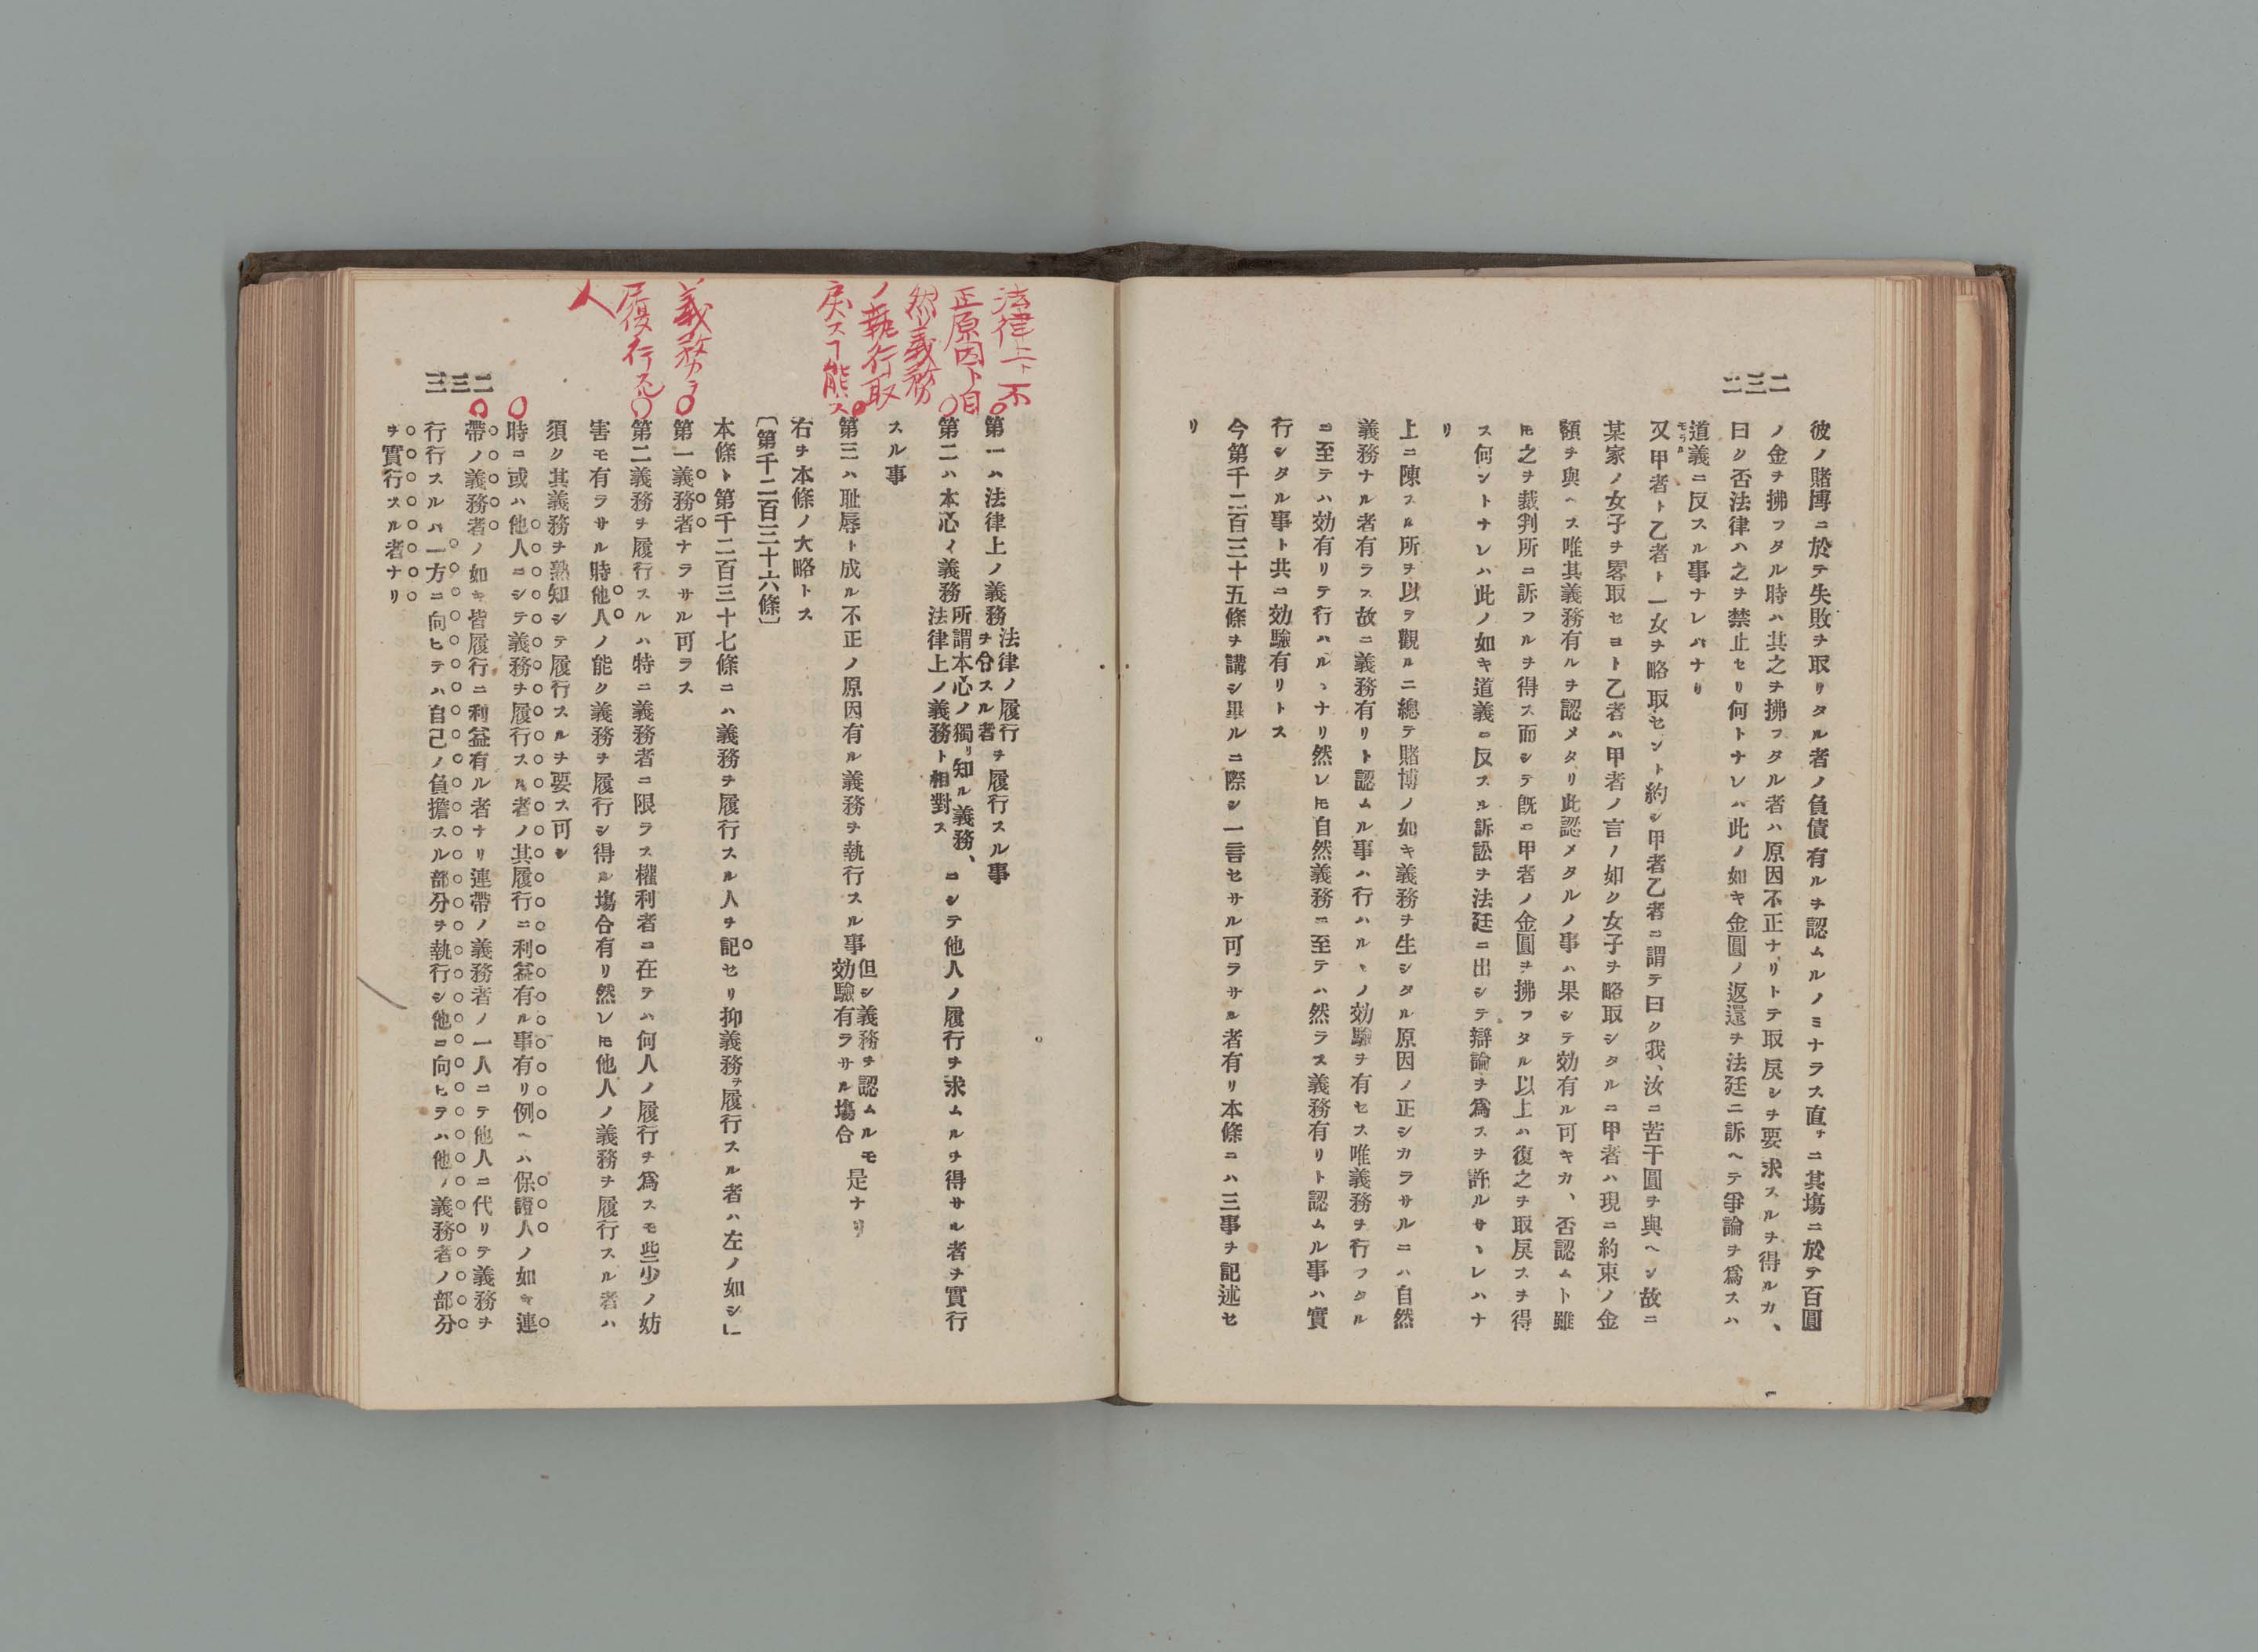 二三二
彼ノ賭博ニ於テ失敗ヲ取リタル者ノ負債有ルヲ認ムルノミナラス直チニ其塲ニ於テ百圓
ノ金ヲ拂フタル時ハ其之ヲ拂フタル者ハ原因不正ナリトテ取戾シヲ要求スルヲ得ルカ、
曰ク否法律ハ之ヲ禁止セリ何トナレハ此ノ如キ金圓ノ返還ヲ法廷ニ訴ヘテ爭論ヲ爲スハ
道義ニ反スル事ナレバナリ
モラル
又甲者ト乙者ト一女ヲ略取セント約シ甲者乙者ニ謂テ曰ク我、汝ニ苦干圓ヲ與ヘン故ニ
某家ノ女子ヲ畧取セヨト乙者ハ甲者ノ言ノ如ク女子ヲ略取シタルニ甲者ハ現ニ約束ノ金
額ヲ與ヘス唯其義務有ルヲ認メタリ此認メタルノ事ハ果シテ効有ル可キカ、否認ムト雖
𪜈之ヲ裁判所ニ訴フルヲ得ス而シテ旣ニ甲者ノ金圓ヲ拂フタル以上ハ復之ヲ取戾スヲ得
ス何ントナレハ此ノ如キ道義ニ反スル訴訟ヲ法廷ニ出シテ辯論ヲ爲スヲ許ルサヽレハナ
リ
上ニ陳スル所ヲ以ヲ觀ルニ總テ賭博ノ如キ義務ヲ生シタル原因ノ正シカラサルニハ自然
義務ナル者有ラス故ニ義務有リト認ムル事ハ行ハルヽノ効驗ヲ有セス唯義務ヲ行フタル
ニ至テハ効有リテ行ハルヽナリ然レ𪜈自然義務ニ至テハ然ラス義務有リト認ムル事ハ實
行シタル事ト共ニ効驗有リトス
今第千二百三十五條ヲ講シ畢ルニ際シ一言セサル可ラサル者有リ本條ニハ三事ヲ記述セ
リ
法律上ト不
正原因ト自
然義務
ノ執行取
戾スヿ能ス
義務ヲ
履行スル
人
二三三
第一ハ法律上ノ義務法律ノ履行ヲ令スル者ヲ履行スル事
第二ハ本心ノ義務所謂本心ノ獨リ知ル義務、法律上ノ義務ト相對スニシテ他人ノ履行ヲ求ムルヲ得サル者ヲ實行
スル事
第三ハ耻辱ト成ル不正ノ原因有ル義務ヲ執行スル事但シ義務ヲ認ムルモ効驗有ラサル塲合是ナリ
右ヲ本條ノ大略トス
〔第千二百三十六條〕
本條ト第千二百三十七條ニハ義務ヲ履行スル人ヲ記セリ抑義務ヲ履行スル者ハ左ノ如シ」
第一義務者ナラサル可ラス
第二義務ヲ履行スルハ特ニ義務者ニ限ラス權利者ニ在テハ何人ノ履行ヲ爲スモ些少ノ妨
害モ有ラサル時他人ノ能ク義務ヲ履行シ得ル塲合有リ然レ𪜈他人ノ義務ヲ履行スル者ハ
須ク其義務ヲ熟知シテ履行スルヲ要ス可シ
時ニ或ハ他人ニシテ義務ヲ履行スル者ノ其履行ニ利益有ル事有リ例ヘハ保證人ノ如キ連
帶ノ義務者ノ如キ皆履行ニ利益有ル者ナリ連帶ノ義務者ノ一人ニテ他人ニ代リテ義務ヲ
行行スルハ一方ニ向ヒテハ自己ノ負擔スル部分ヲ執行シ他ニ向ヒテハ他ノ義務者ノ部分
ヲ實行スル者ナリ